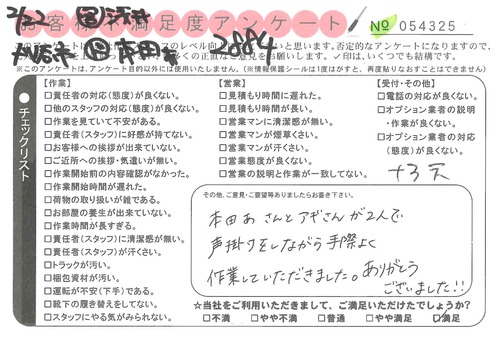 お客様不満足度アンケート
№ 054325
2884
※このアンケートは、アンケート目的以外には使用いたしません。(※情報保護シールは1度はがすと、再度貼りなおすことはできません)
チェックリスト
【作業】
□責任者の対応(態度)が良くない。
□他のスタッフの対応(態度)が良くない。
□作業を見ていて不安がある。
□責任者(スタッフ)に好感が持てない。
□お客様への挨拶が出来ていない。
□ご近所への挨拶・気遣いが無い。
□作業開始前の内容確認がなかった。
□作業開始時間が遅れた。
□荷物の取り扱いが雑である。
□お部屋の養生が出来ていない。
□作業時間が長すぎる。
□責任者(スタッフ)に清潔感が無い。
□責任者(スタッフ)が汗くさい。
□トラックが汚い。
□梱包資材が汚い。
□運転が不安(下手)である。
□靴下の履き替えをしてない。
□スタッフにやる気がみられない。
【営業】
□見積もり時間に遅れた。
□見積もり時間が長い。
□営業マンに清潔感が無い。
□営業マンが煙草くさい。
□営業マンが汗くさい。
□営業態度が良くない。
□営業の説明と作業が一致してない。
【受付・その他】
□電話の対応が良くない。
□オプション業者の説明
・作業が良くない。
□オプション業者の対応
(態度)が良くない。
その他、ご意見・ご要望等ありましたらお書き下さい。
本田あさんとアギさんが2人で
声掛けをしながら手際よく
作業していただきました。ありがとう
ございました!!
☆当社をご利用いただきまして、ご満足いただけたでしょうか?
□不満 □やや不満 □普通 □やや満足 ☑満足